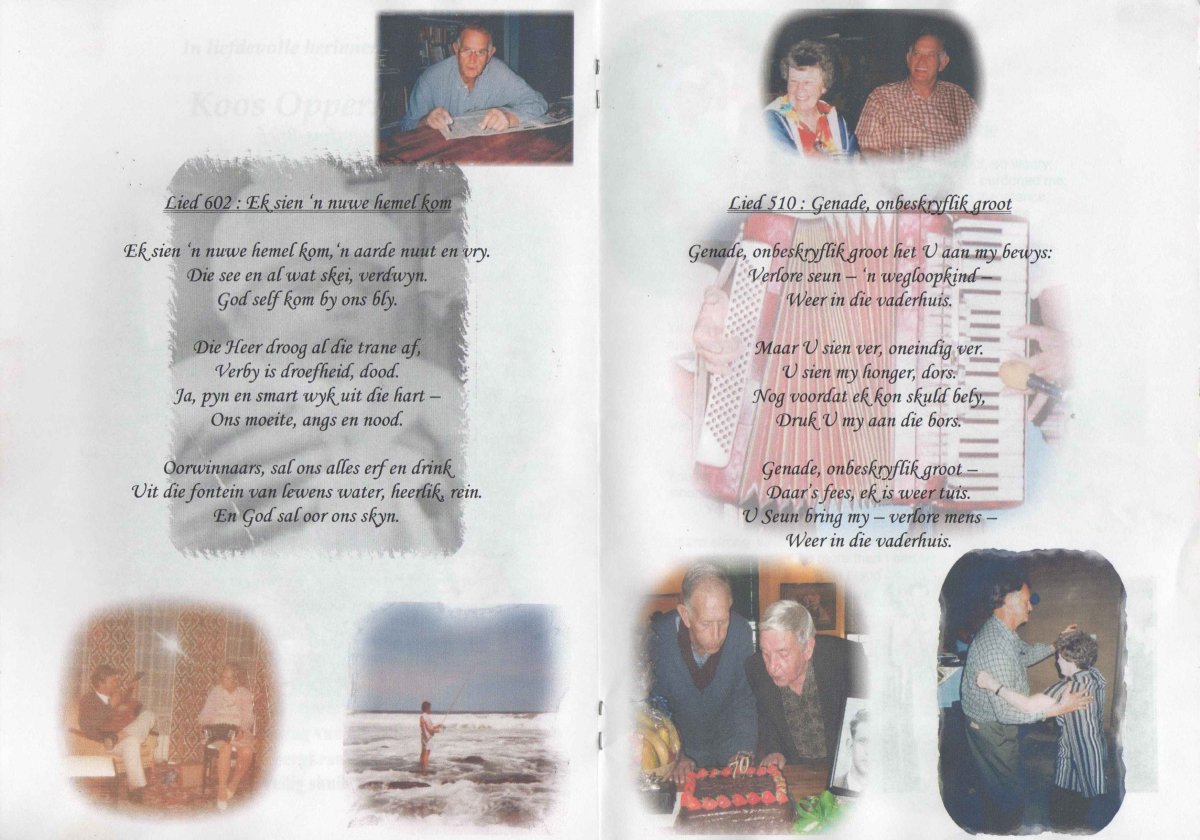 In liefdevolle herinner
Koos Opper
Lied 602 : Ek sien ‘n nuwe hemel kom
Ek sien ‘n nuwe hemel kom,‘n aarde nuut en vry.
Die see en al wat skei, verdwyn.
God self kom by ons bly.
Die Heer droog al die trane af,
Verby is droefheid, dood.
Ja, pyn en smart wyk uit die hart –
Ons moeite, angs en nood.
Oorwinnaars, sal ons alles erf en drink
Uit die fontein van lewens water, heerlik, rein.
En God sal oor ons skyn.
Lied 510 : Genade, onbeskryflik groot
Genade, onbeskryflik groot het U aan my bewys:
Verlore seun – ‘n wegloopkind –
Weer in die vaderhuis.
Maar U sien ver, oneindig ver.
U sien my honger, dors.
Nog voordat ek kon skuld bely,
Druk U my aan die bors.
Genade, onbeskryflik groot –
Daar’s fees, ek is weer tuis.
U Seun bring my – verlore mens –
Weer in die vaderhuis.
70